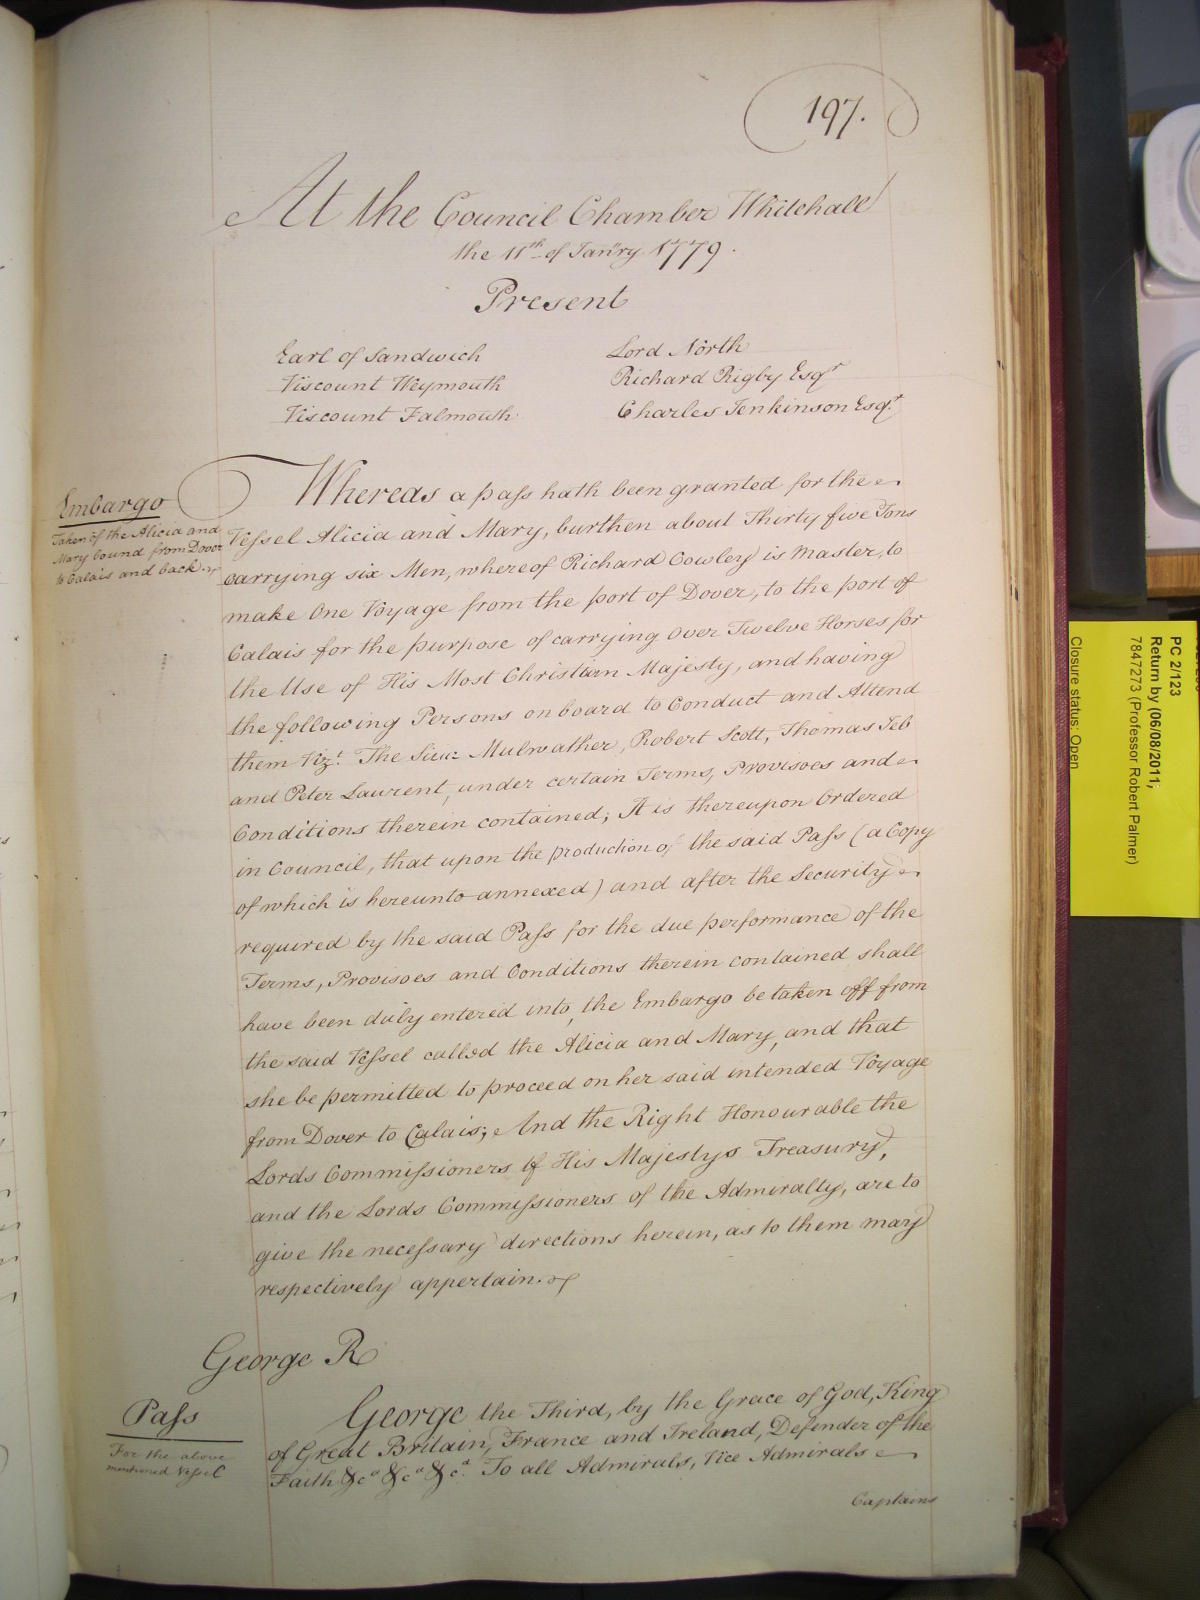 197.
At the Council Chamber Whitehall
the 11th of Jan'ry 1779.
Present
Earl of Sandwich
Viscount Weymouth
Viscount Falmouth
Lord North
Richard Rigby Esqr
Charles Jenkinson Esqr.
Embargo
Taken of the Alicia and
Mary bound from Dover
to Calais and back.
Whereas a pass hath been granted for the
Vessel Alicia and Mary, burthen about Thirty five Tons
carrying six Men, whereof Richard Cowley is Master, to
make One Voyage from the port of Dover, to the port of
Calais for the purpose of carrying over Twelve Horses for
the Use of His Most Christian Majesty, and having
the following Persons on board to Conduct and Attend
them Vizt. The Mulwather, Robert Scott, Thomas Jeb
and Peter Laurent, under certain Terms, Provisoes and
Conditions therein contained; It is thereupon Ordered
in Council, that upon the production of the said Pass (a Copy
of which is hereunto annexed) and after the Security
required by the said Pass for the due performance of the
Terms, Provisoes and Conditions therein contained shall
have been duly entered into, the Embargo be taken off from
the said Vessel called the Alicia and Mary, and that
she be permitted to proceed on her said intended Voyage
from Dover to Calais; And the Right Honourable the
Lords Commissioners of His Majestys Treasury,
and the Lords Commissioners of the Admiralty, are to
give the necessary directions herein, as to them may
respectively appertain.
George R
Pass
For the above
mentioned Vessel
George the Third, by the Grace of God, King
of Great Britain, France and Ireland, Defender of the
Faith &ca &ca &ca. To all Admirals, Vice Admirals
Captains
PC 2/123
Return by (06/08/2011;
7847273 (Professor Robert Palmer)
Closure status: Open